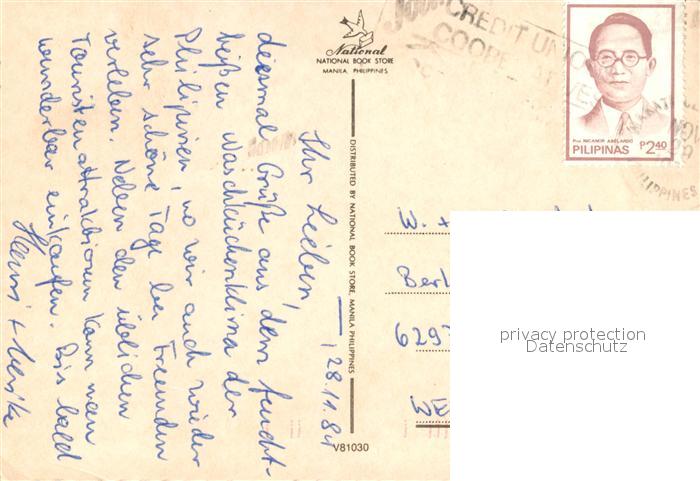 National
NATIONAL BOOK STORE
MANILA, PHILIPPINES
CREDIT UNIO
COOPE
Pros NICANOR ABELARDO
PILIPINAS P2.40
MAKATI
NOV
ILIPPINES
DISTRIBUTED BY NATIONAL BOOK STORE, MANILA PHILIPPINES
V81030
, 28.11.84
Ihr Lieben,
diesmal Grüße aus dem feucht-
heißen Waschküchenklima der
Philipinen, wo wir auch wieder
sehr schöne Tage bei Freunden
verleben. Neben den üblichen
Touristenattraktionen kann man
wunderbar einkaufen. Bis bald
W. +
Berl
629
WE
privacy protection
Datenschutz